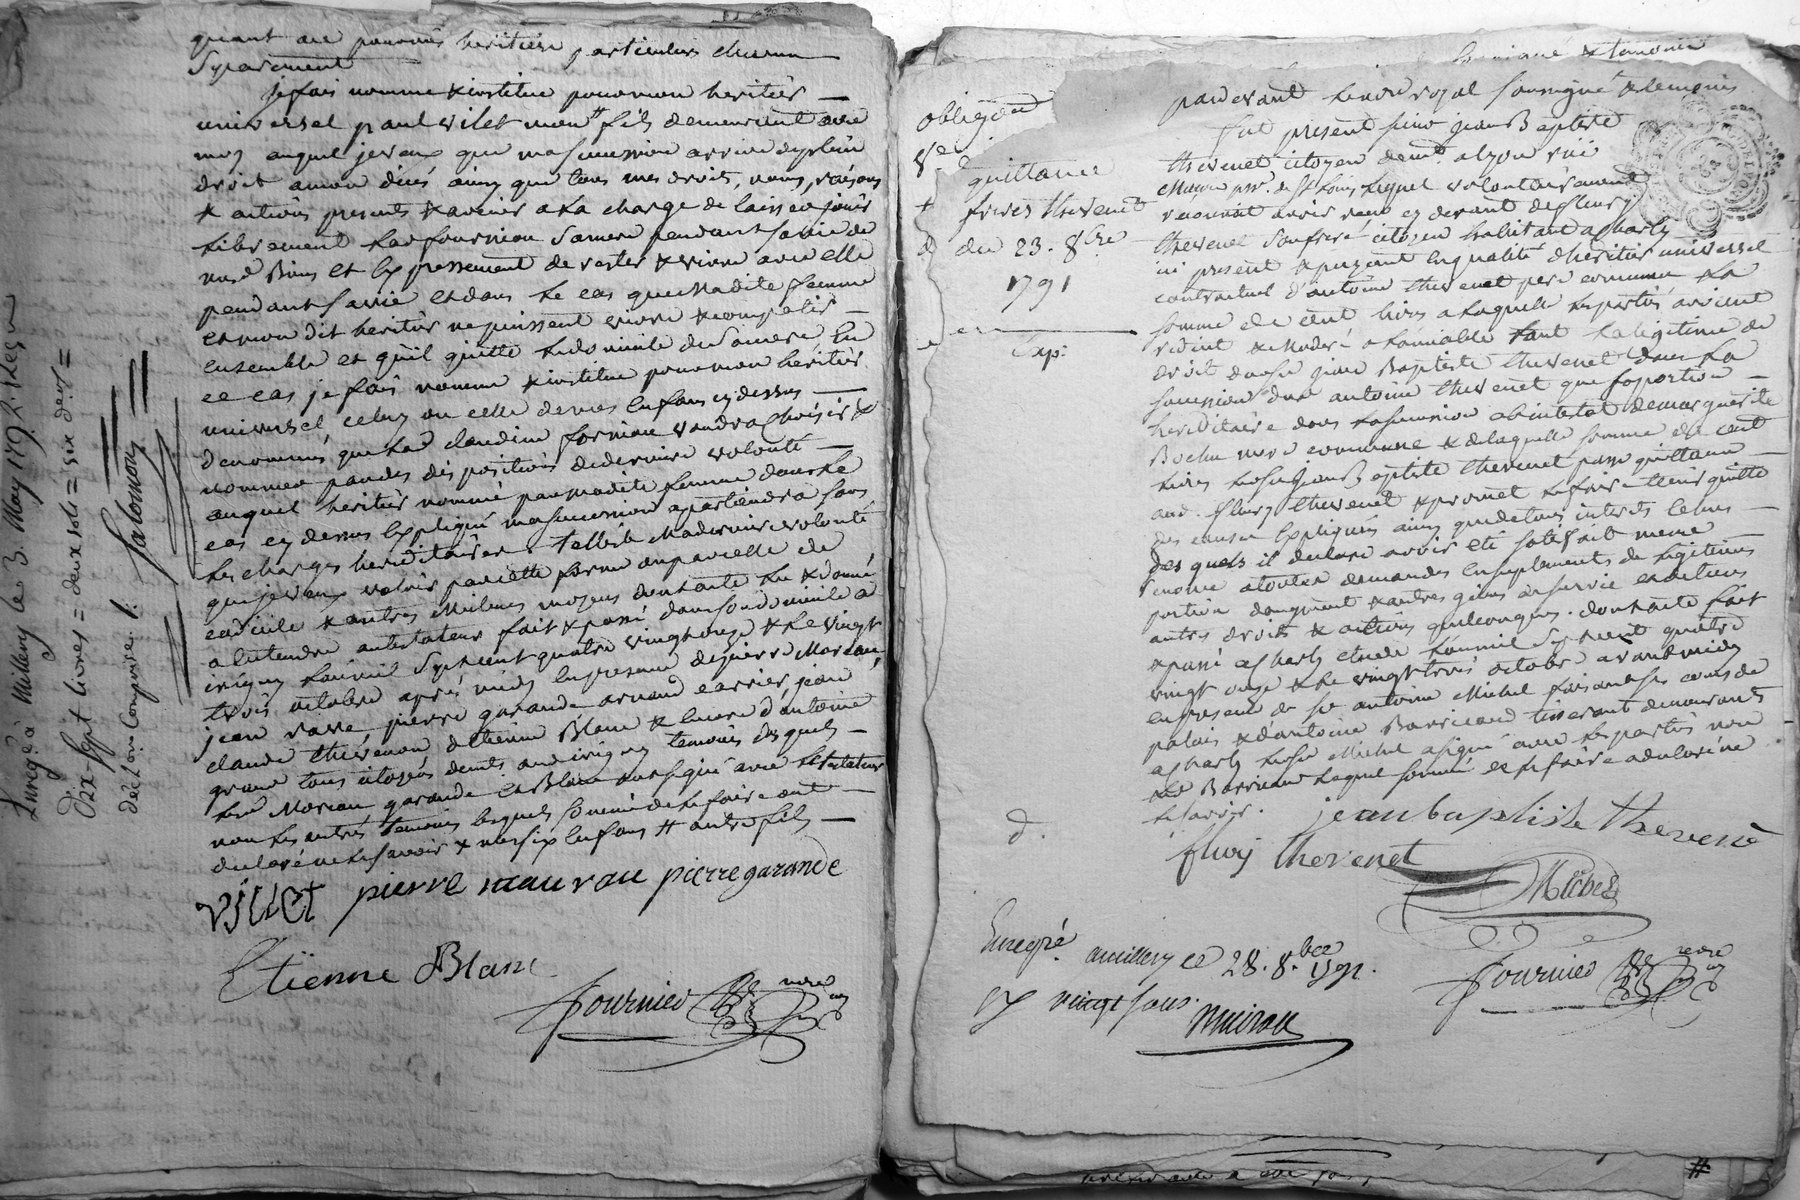 quant aux pouvoirs heritiers particuliers chacun
Separement
je fais nomme & institue pour mon heritier
universel paul vilet mon fils demeurant avec
moy auquel je veux que ma succession arrive de plein
droit a mon décés ainsy que tous mes droits, noms, raisons
& actions presents & avenir a la charge de laisser jouir
librement lad fournion sa mere pendant sa vie de
mesd Biens et Expressement de rester & vivre avec elle
pendant sa vie et dans le cas que madite femme
et mon dit heritier ne puissent vivre & compatir
ensemble et qu'il quitte le domicile de sa mere En
ce cas je fais nomme & institue pour mon heritier
universel celuy ou celle de mes Enfans cy dessus
denommés que lad claudine fornion voudra choisir &
nommer par des dispositions de derniere volonté
auquel heritier nommé par madite femme dans le
cas cy dessus Expliqué ma succession apartiendra sous
les charges hereditaires. telle est ma derniere volonté
que je veux valoir par cette forme ou par celle de
codicile & autres meilleurs moyens dont acte lu & donné
a Entendre au testateur fait & passé dans son domicile a
irigny l'an mil sept cent quatre vingt onze & le vingt
trois octobre aprés midy En presence de pierre Moreau
jean rave, pierre garande arnaud carrier, jean
claude thévenon Etienne Blanc & d'antoine
grand tous citoyens demts aud irigny temoins des quels
led Moreau garande et Blanc ont signé avec le testateur
non les autres temoins lesquels sommé de le faire ont
declaré ne le savoir & mes six Enfans # autre fils
viLLet pierre mauvau pierre garande
Etienne Blanc
fournier nore
Enregé à Millery le 3. May 1792. Reçu
dix Sept livres = deux sols = six ders =
Salomon
obligaon
quittance
freres thevenet
du 23. 8bre
1791
Exp:
pardevant le nore royal soussigné & temoins
fut present sieur jean Baptiste
thevenet citoyen demt a lyon rüe
psse. de St Louis lequel volontairement
reconnoit avoir reçu cy devant de fleury
thevenet son frere citoyen habitant a charly
ici present & payant En qualité d'heritier universel
contractuel d'antoine thevenet pere commun la
somme de cent livres a laquelle les parties avoient
reduit & moderé a l'amiable tant la legitime de
droit dud jean Baptiste thevenet dans la
succession dud antoine thevenet que sa portion
hereditaire dans la succession abintestat de marguerite
Bochu mere commune & de laquelle somme de cent
livres led jean Baptiste thevenet passe quittance
aud. fleury thevenet & promet le faire tenir quitte
des causes Expliquées ainsy que de tous interets Echus
des quels il declare avoir été satisfait meme
renonce a toutes demandes En suplements de legitimes
portion d'augment & autres gains de survie et a tous
autres droits & actions quelconques. dont acte fait
& passé a charly etude l'an mil sept cent quatre
vingt onze & le vingt trois octobre avant midy
En presence de sr antoine Michel faisant cours de
palais & d'antoine Barricand tisserant demeurants
a charly led Michel a signé avec les parties non
led Barricand lequel sommé de le faire a declaré ne
le savoir.
d.
jean baptiste thevenet
fleury thevenet
Michel
Enregré. a millery ce 28. 8.bre 1791.
vingt sous.
fournier nore
#